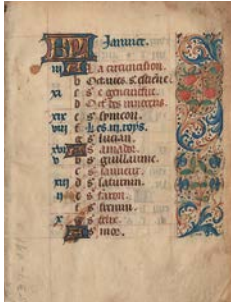 KL Januier.
iii A La circuncision.
b Octaues s. estiene
xi c s'. geneuiefue.
d Oct des innocens.
xix e s'. symeon.
viii f Les iii. roys.
g s' lucian.
xvi A s' amadr.
v b s' guillaume.
c s' sauueur.
xiii d s' saturnin.
ii e s'
f s' firmin.
x g s' felix.
A s' mor.